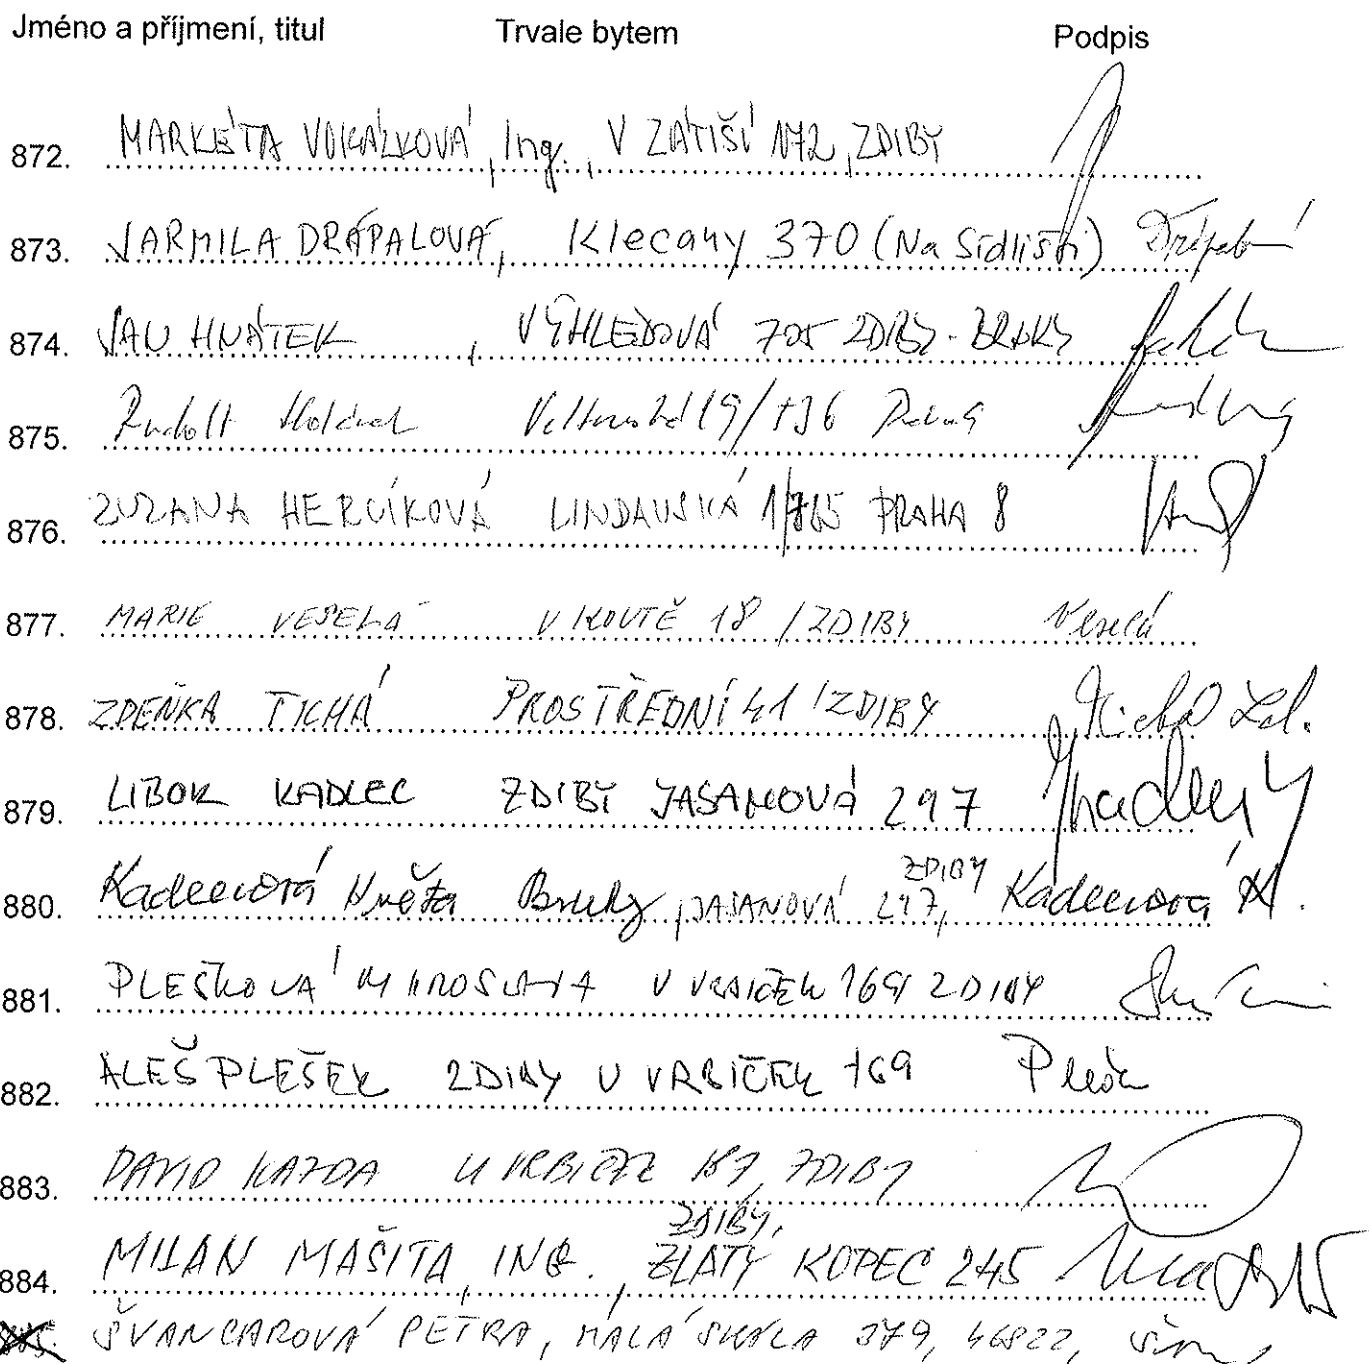 Jméno a příjmení, titul Trvale bytem Podpis
872. MARKÉTA VOKÁLKOVÁ, Ing., V ZÁTIŠÍ 172, ZDIBY
873. JARMILA DRÁPALOVÁ, Klecany 370 (Na Sídlišti) Drápalová
874. JAN HNÁTEK, VÝHLEDOVÁ 705 ZDIBY-BRNKY
875. Rudolf
876. ZUZANA HERCÍKOVÁ LINDAVSKÁ PRAHA 8
877. MARIE VESELÁ V KOUTĚ 18 / ZDIBY Veselá
878. ZDEŇKA TICHÁ PROSTŘEDNÍ 41 / ZDIBY Tichá Zd.
879. LIBOR KADLEC ZDIBY JASANOVÁ 297 Kadlec
880. Kadlecová Květa Brnky, JASANOVÁ 297, ZDIBY Kadlecová K.
881. PLEŠKOVÁ MIROSLAVA U VRBIČEK 169 ZDIBY
882. ALEŠ PLEŠEK ZDIBY U VRBIČEK 169 Plešek
883. DAVID KAZDA U VRBIČEK ZDIBY
884. MILAN MAŠITA, ING., ZDIBY, ZLATÝ KOPEC 245
885. ŠVANCAROVÁ PETRA, MALÁ SKÁLA 379, 46822,